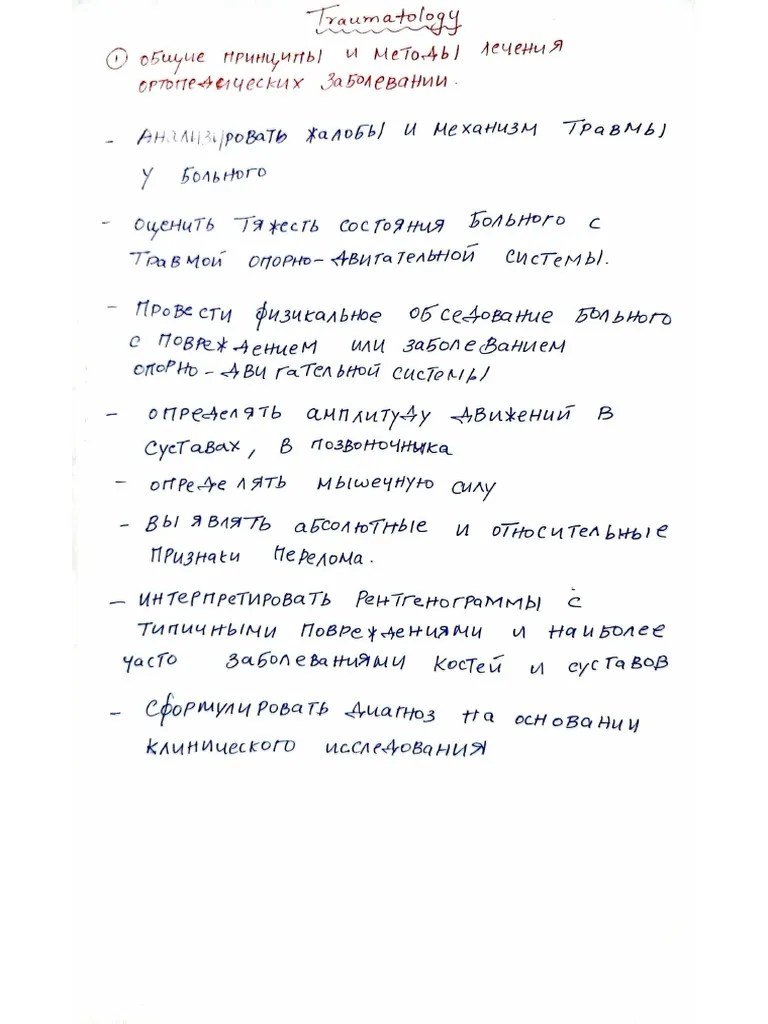 Traumatology
① Общие принципы и методы лечения
ортопедических заболевании.
- Анализировать жалобы и механизм травмы
у больного
- оценить тяжесть состояния больного с
травмой опорно-двигательной системы.
- Провести физикальное обседование больного
с повреждением или заболеванием
опорно-двигательной системы
- определять амплитуду движений в
суставах, в позвоночника
- определять мышечную силу
- Выявлять абсолютные и относительные
признаки перелома.
- интерпретировать рентгенограммы с
типичными повреждениями и наиболее
часто заболеваниями костей и суставов
- Сформулировать диагноз на основании
клинического исследования